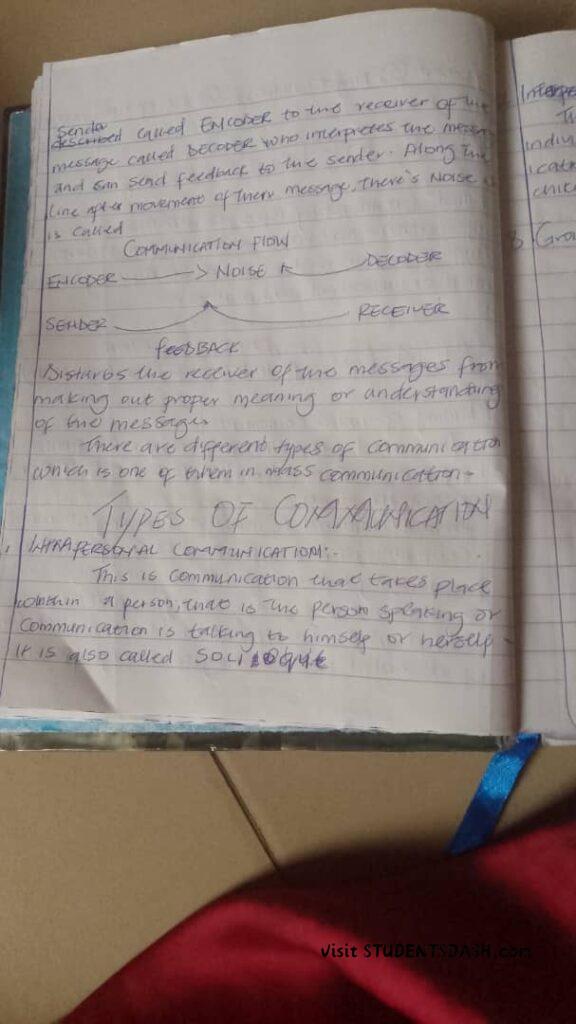 Sender
described called ENCODER to the receiver of the
message called DECODER who interpretes the message
and can send feedback to the sender. Along the
line after movement of them message, there's NOISE
is called
COMMUNICATION FLOW
ENCODER NOISE DECODER
SENDER RECEIVER
feedBACK
Disturbs the receiver of the messages from
making out proper meaning or understanding
of the message.
There are different types of communication
which is one of them in mass communication.
TYPES OF COMMUNICATION
INTRAPERSONAL COMMUNICATION:-
This is communication that takes place
within a person, that is the person speaking or
communication is talking to himself or herself
It is also called SOLILOQUE
Interpe
Th
indivi
icati
chic
Gro
Visit STUDENTSDASH.com